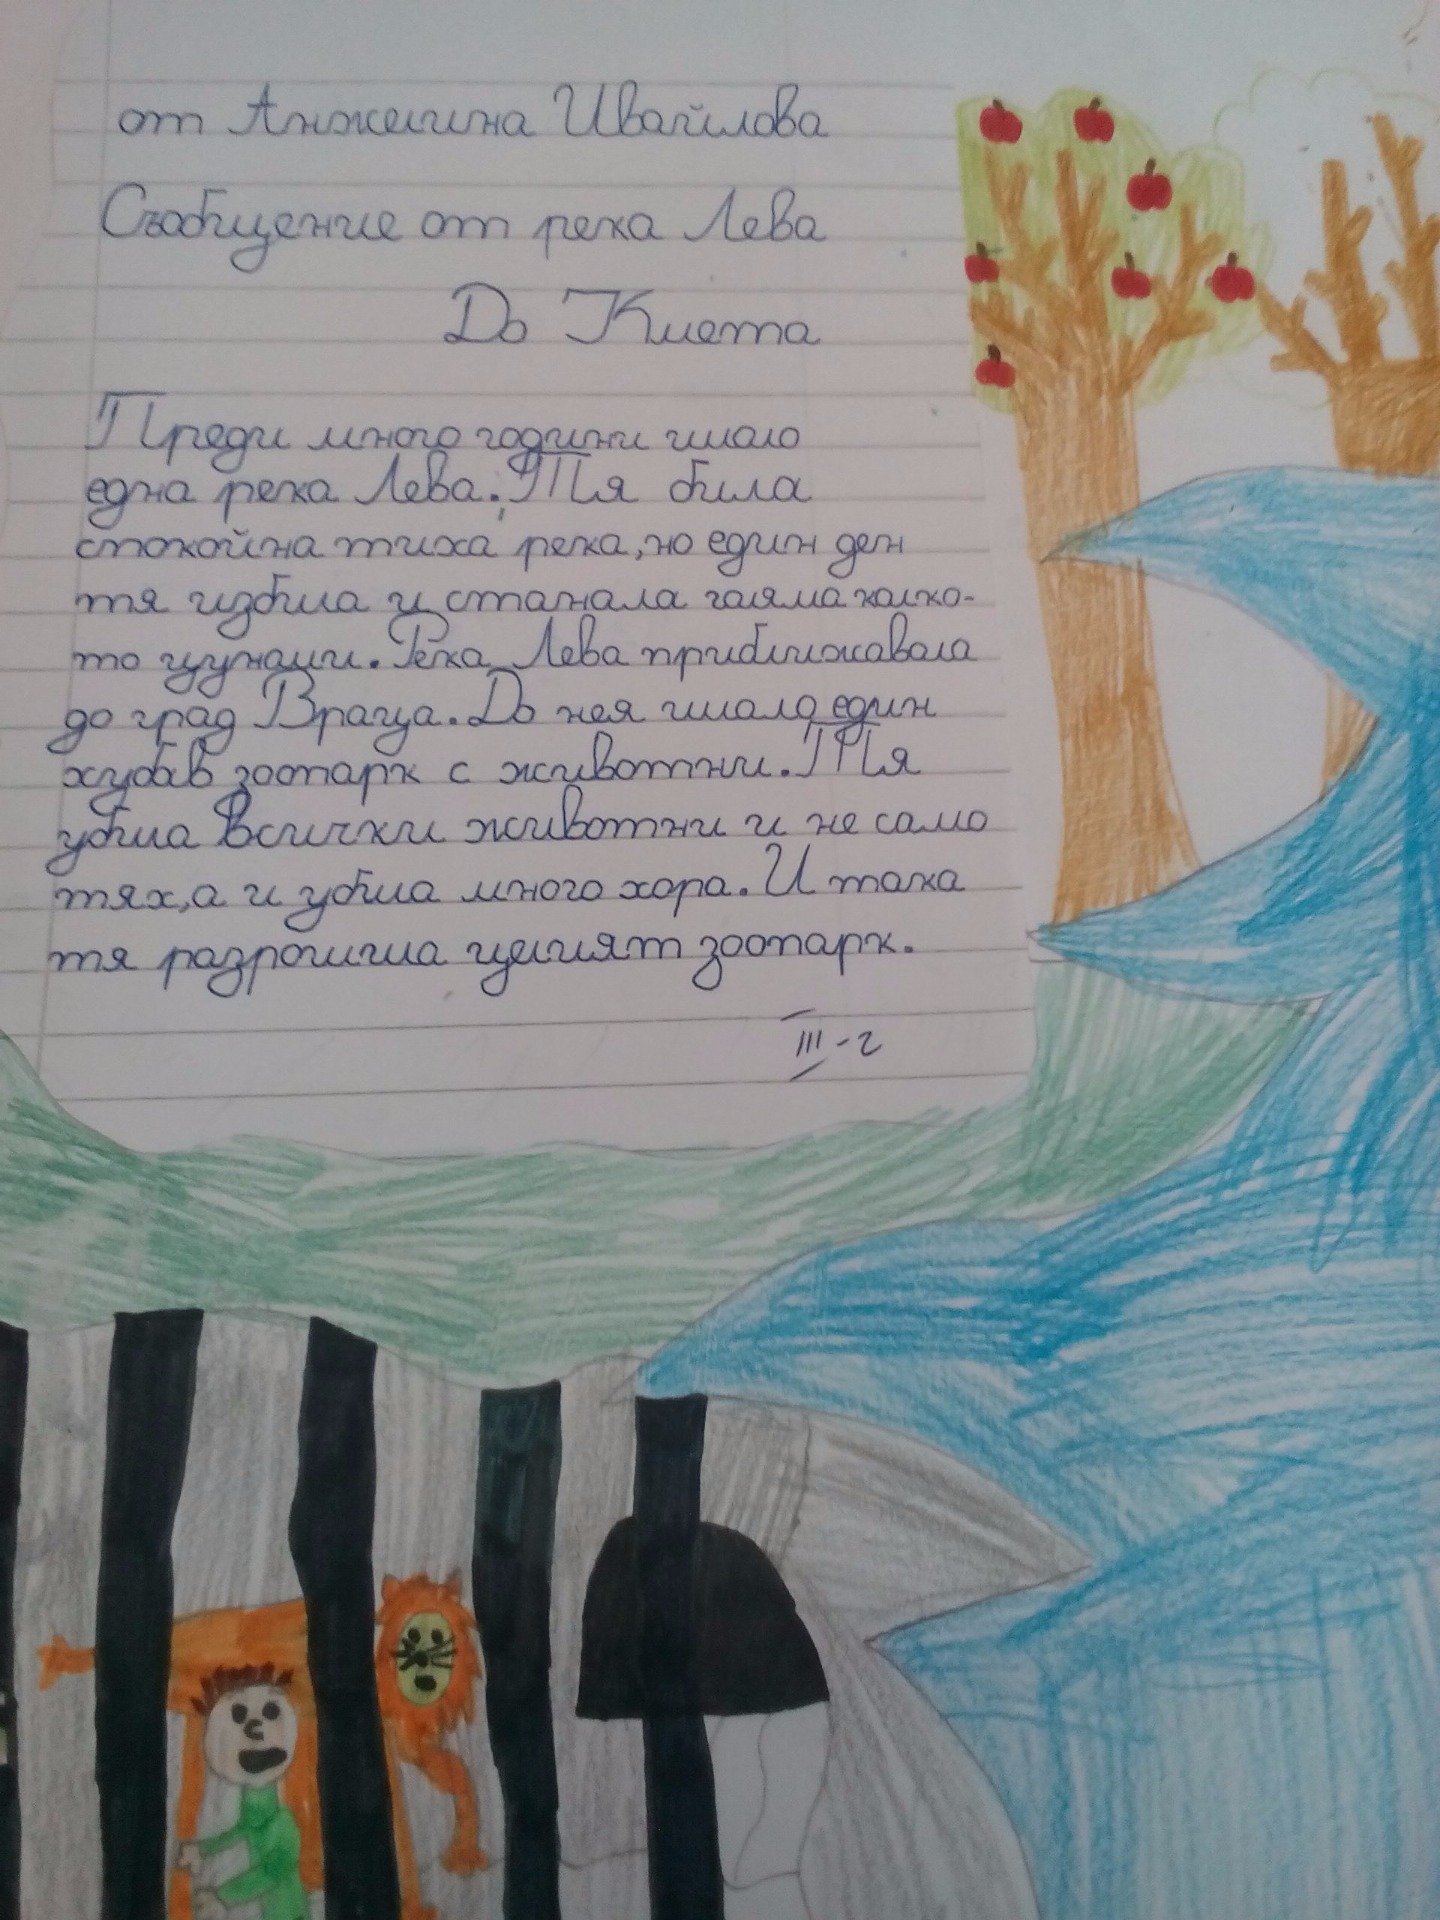 от Анжелина Ивайлова
Съобщение от река Лева
До Кмета
Преди много години имало
една река Лева. Тя била
спокойна тиха река, но един ден
тя избила и станала голяма колко-
то цунами. Река Лева приближавала
до град Враца. До нея имало един
хубав зоопарк с животни. Тя
убила всички животни и не само
тях, а и убила много хора. И така
тя разрошила целият зоопарк.
III-г